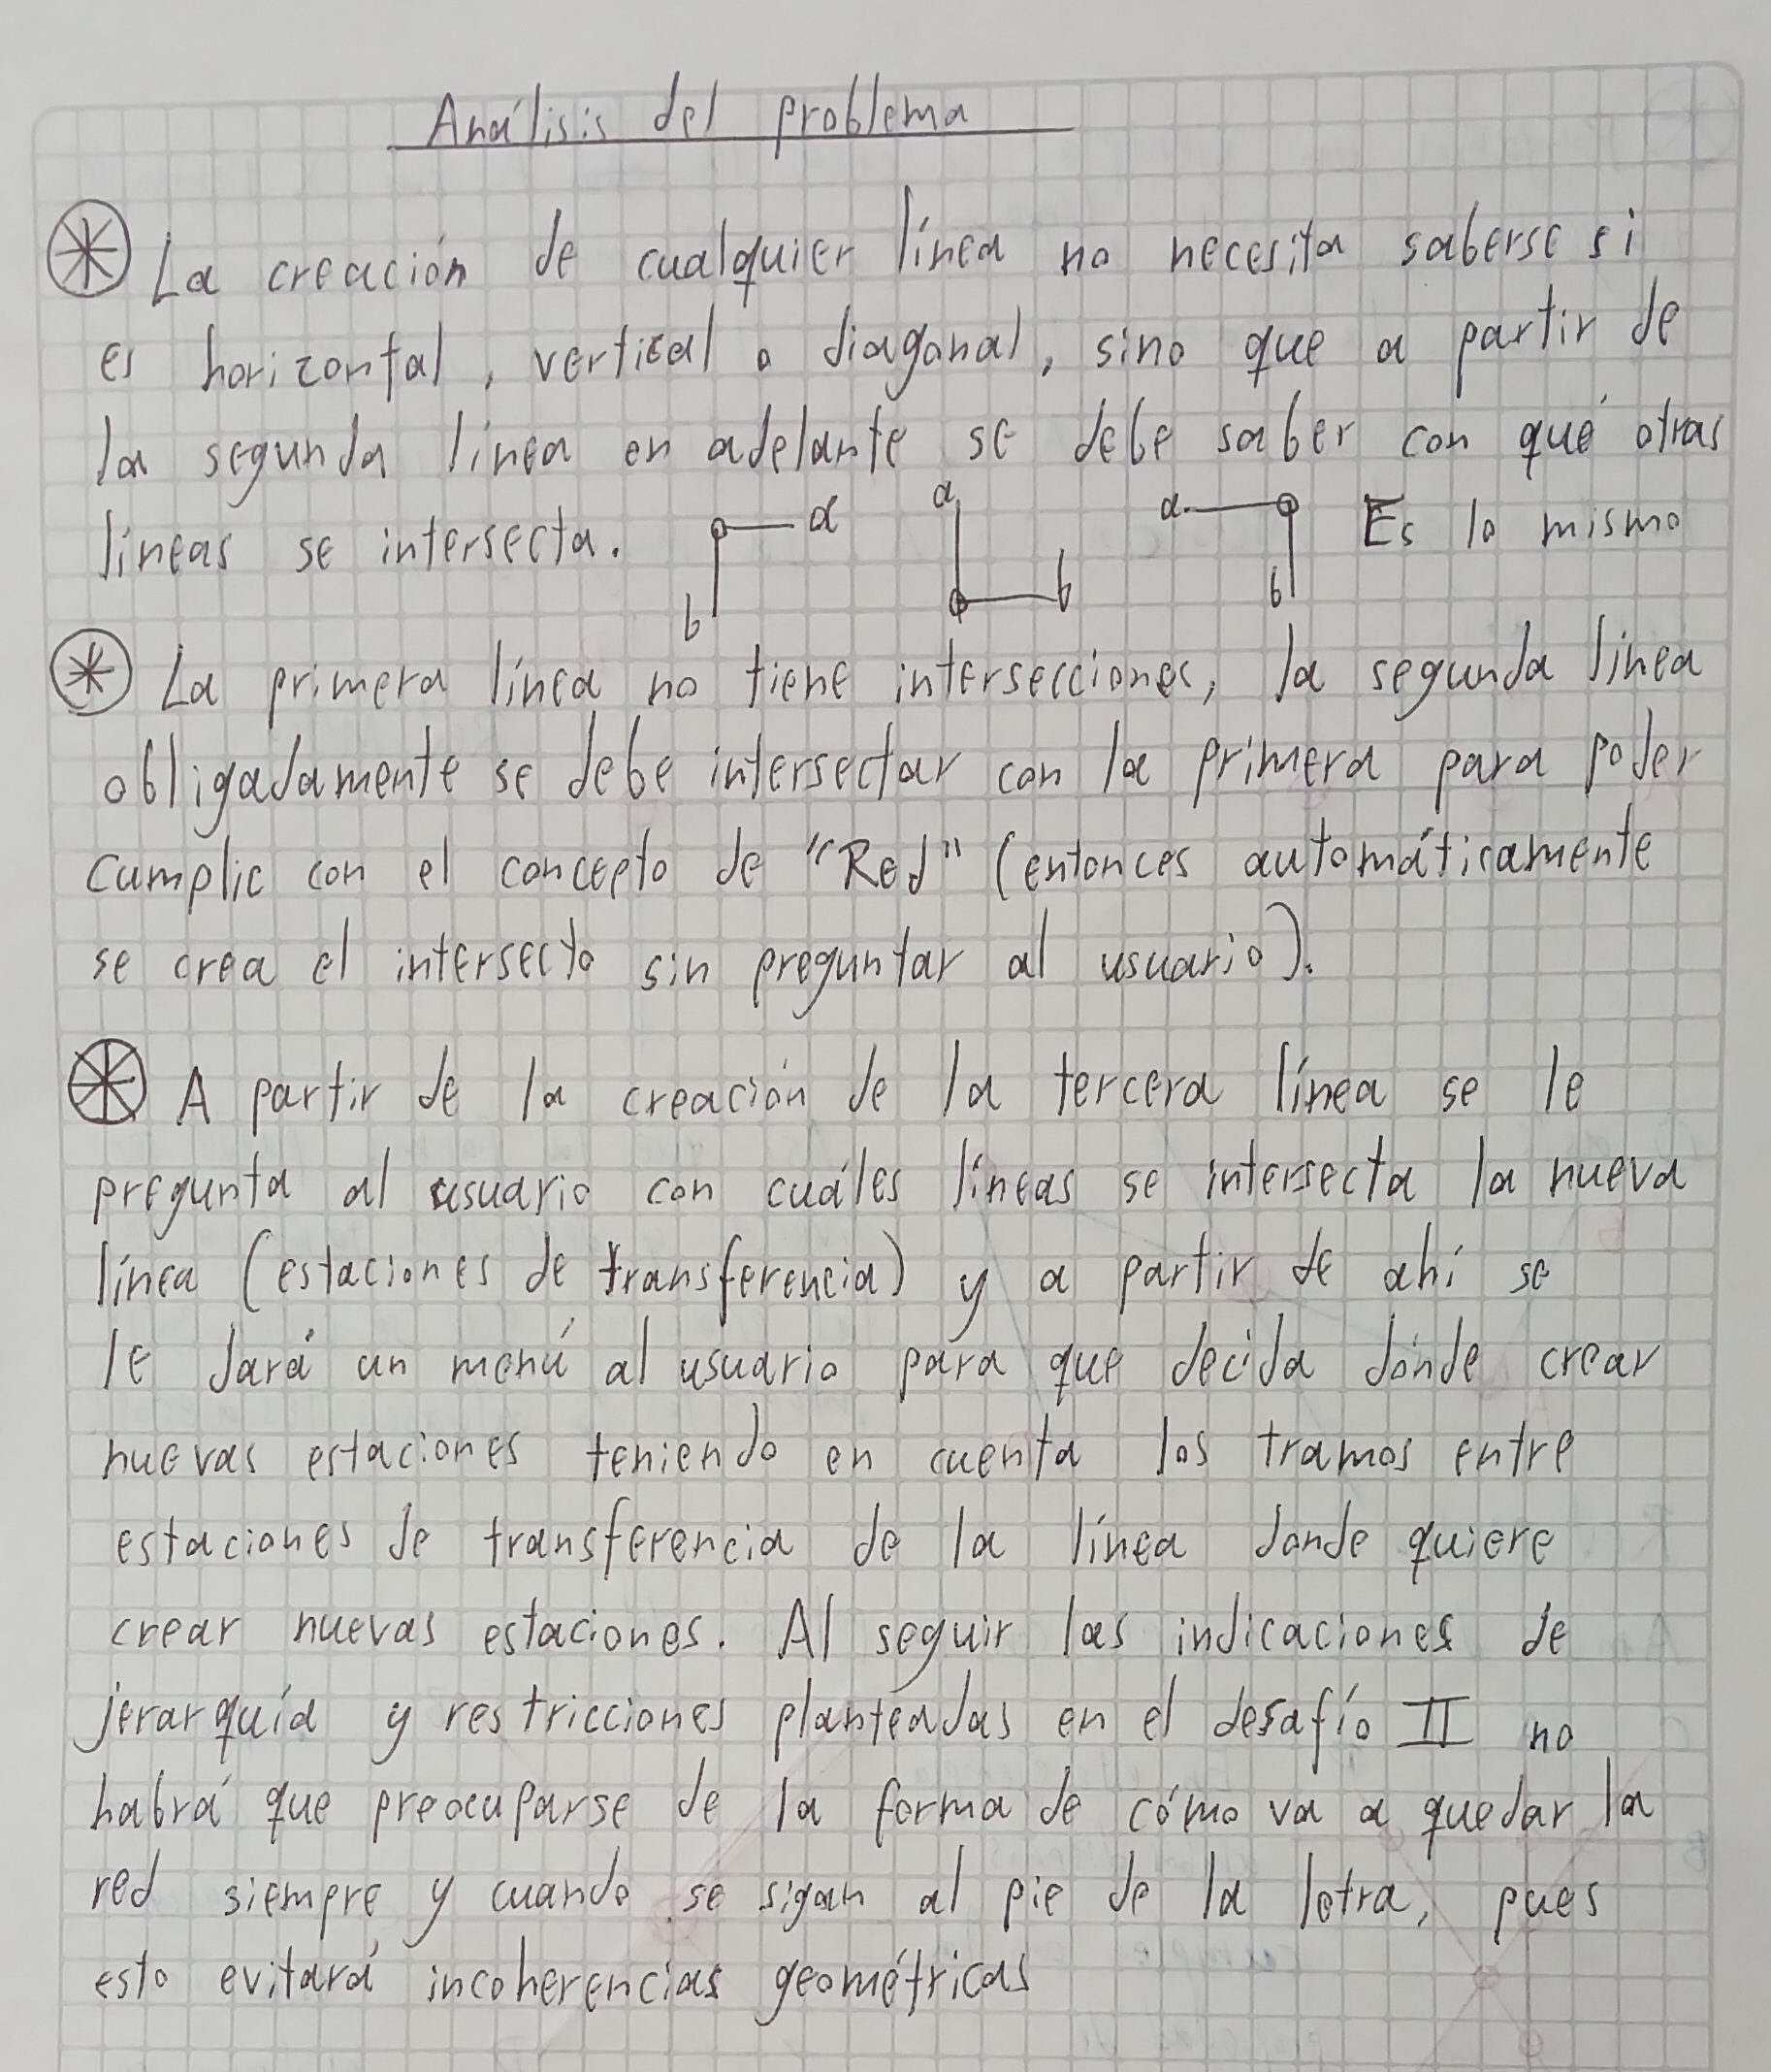 Análisis del problema
La creación de cualquier línea no necesita saberse si
es horizontal, vertical o diagonal, sino que a partir de
la segunda línea en adelante se debe saber con qué otras
líneas se intersecta. a b a b a b Es lo mismo
La primera línea no tiene intersecciones, la segunda línea
obligadamente se debe intersectar con la primera para poder
cumplir con el concepto de "Red" (entonces automáticamente
se crea el intersecto sin preguntar al usuario).
A partir de la creación de la tercera línea se le
pregunta al usuario con cuáles líneas se intersecta la nueva
línea (estaciones de transferencia) y a partir de ahí se
le dará un menú al usuario para que decida dónde crear
nuevas estaciones teniendo en cuenta los tramos entre
estaciones de transferencia de la línea donde quiere
crear nuevas estaciones. Al seguir las indicaciones de
jerarquía y restricciones planteadas en el desafío II no
habrá que preocuparse de la forma de cómo va a quedar la
red siempre y cuando se sigan al pie de la letra, pues
esto evitará incoherencias geométricas